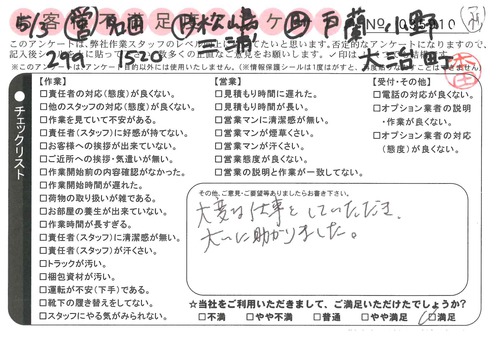 5/3
No.
このアンケートは、弊社作業スタッフのレベル
※このアンケート目的以外には使用いたしません。
チェックリスト
【作業】
□責任者の対応(態度)が良くない。
□他のスタッフの対応(態度)が良くない。
□作業を見ていて不安がある。
□責任者(スタッフ)に好感が持てない。
□お客様への挨拶が出来ていない。
□ご近所への挨拶・気遣いが無い。
□作業開始前の内容確認がなかった。
□作業開始時間が遅れた。
□荷物の取り扱いが雑である。
□お部屋の養生が出来ていない。
□作業時間が長すぎる。
□責任者(スタッフ)に清潔感が無い。
□責任者(スタッフ)が汗くさい。
□トラックが汚い。
□梱包資材が汚い。
□運転が不安(下手)である。
□靴下の履き替えをしてない。
□スタッフにやる気がみられない。
【営業】
□見積もり時間に遅れた。
□見積もり時間が長い。
□営業マンに清潔感が無い。
□営業マンが煙草くさい。
□営業マンが汗くさい。
□営業態度が良くない。
□営業の説明と作業が一致してない。
【受付・その他】
□電話の対応が良くない。
□オプション業者の説明
・作業が良くない。
□オプション業者の対応
(態度)が良くない。
その他、ご意見・ご要望等ありましたらお書き下さい。
大変な仕事をしていただき、
大いに助かりました。
☆当社をご利用いただきまして、ご満足いただけたでしょうか?
□不満 □やや不満 □普通 □やや満足 □満足